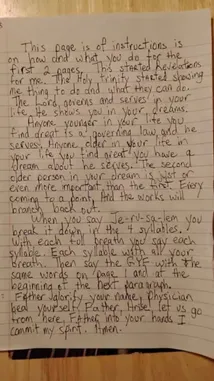 This page is of instructions is
on how and what you do for the
first 2 pages. This started Revelations
for me. The Holy Trinity started showing
me thing to do and what they can do.
The Lord, governs and serves in your
life. He shows you in your dreams.
Anyone younger in your life you
find great is a governing law and he
serves. Anyone older in your life in
your life you find great. You have a
dream about he serves. The second
older person in your dream is just or
even more important than the first. Every
coming to a point, And the works will
branch back out.
When you say Je-ru-sa-lem you
break it down in the 4 syllables.
With each full breath you say each
syllable. Each syllable with all your
breath. Then say the BYE with the
same words on page 1 and at the
beginning of the next paragraph.
Father glorify your name, Physician
heal yourself, Father, let us go
from here, Father into your hands I
commit my spirit. Amen.